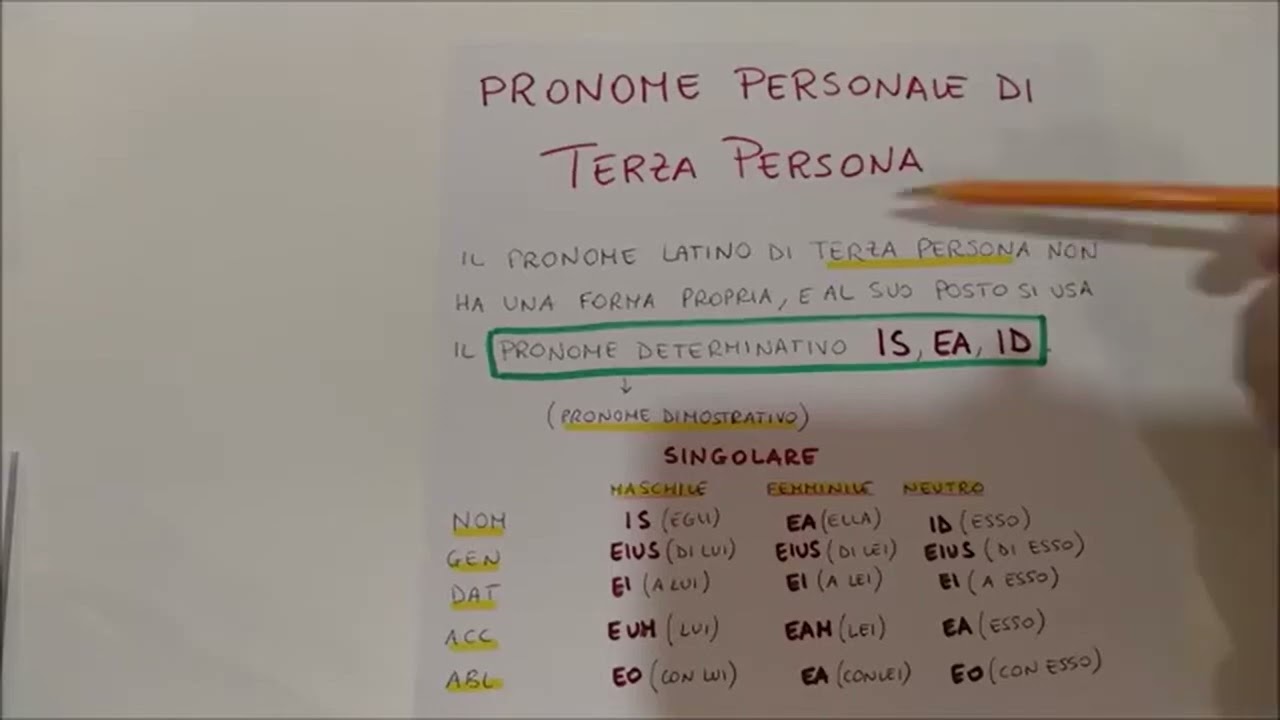 PRONOME PERSONALE DI
TERZA PERSONA
IL PRONOME LATINO DI TERZA PERSONA NON
HA UNA FORMA PROPRIA, E AL SUO POSTO SI USA
IL PRONOME DETERMINATIVO IS, EA, ID.
↓
(PRONOME DIMOSTRATIVO)
SINGOLARE
MASCHILE FEMMINILE NEUTRO
NOM IS (EGLI) EA (ELLA) ID (ESSO)
GEN EIUS (DI LUI) EIUS (DI LEI) EIUS (DI ESSO)
DAT EI (A LUI) EI (A LEI) EI (A ESSO)
ACC EUM (LUI) EAM (LEI) EA (ESSO)
ABL EO (CON LUI) EA (CON LEI) EO (CON ESSO)